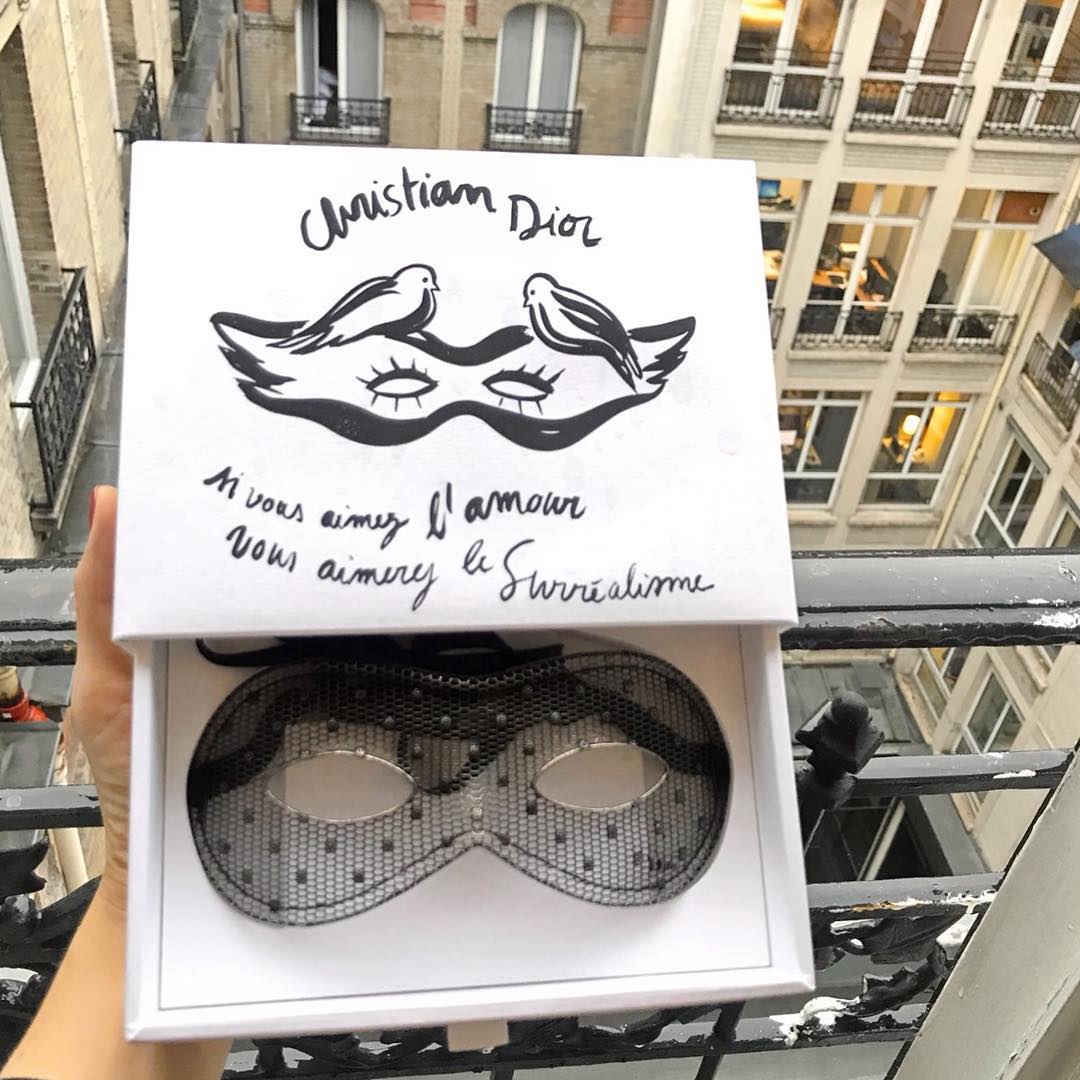 Christian Dior
Si vous aimez l'amour
vous aimerez le Surréalisme